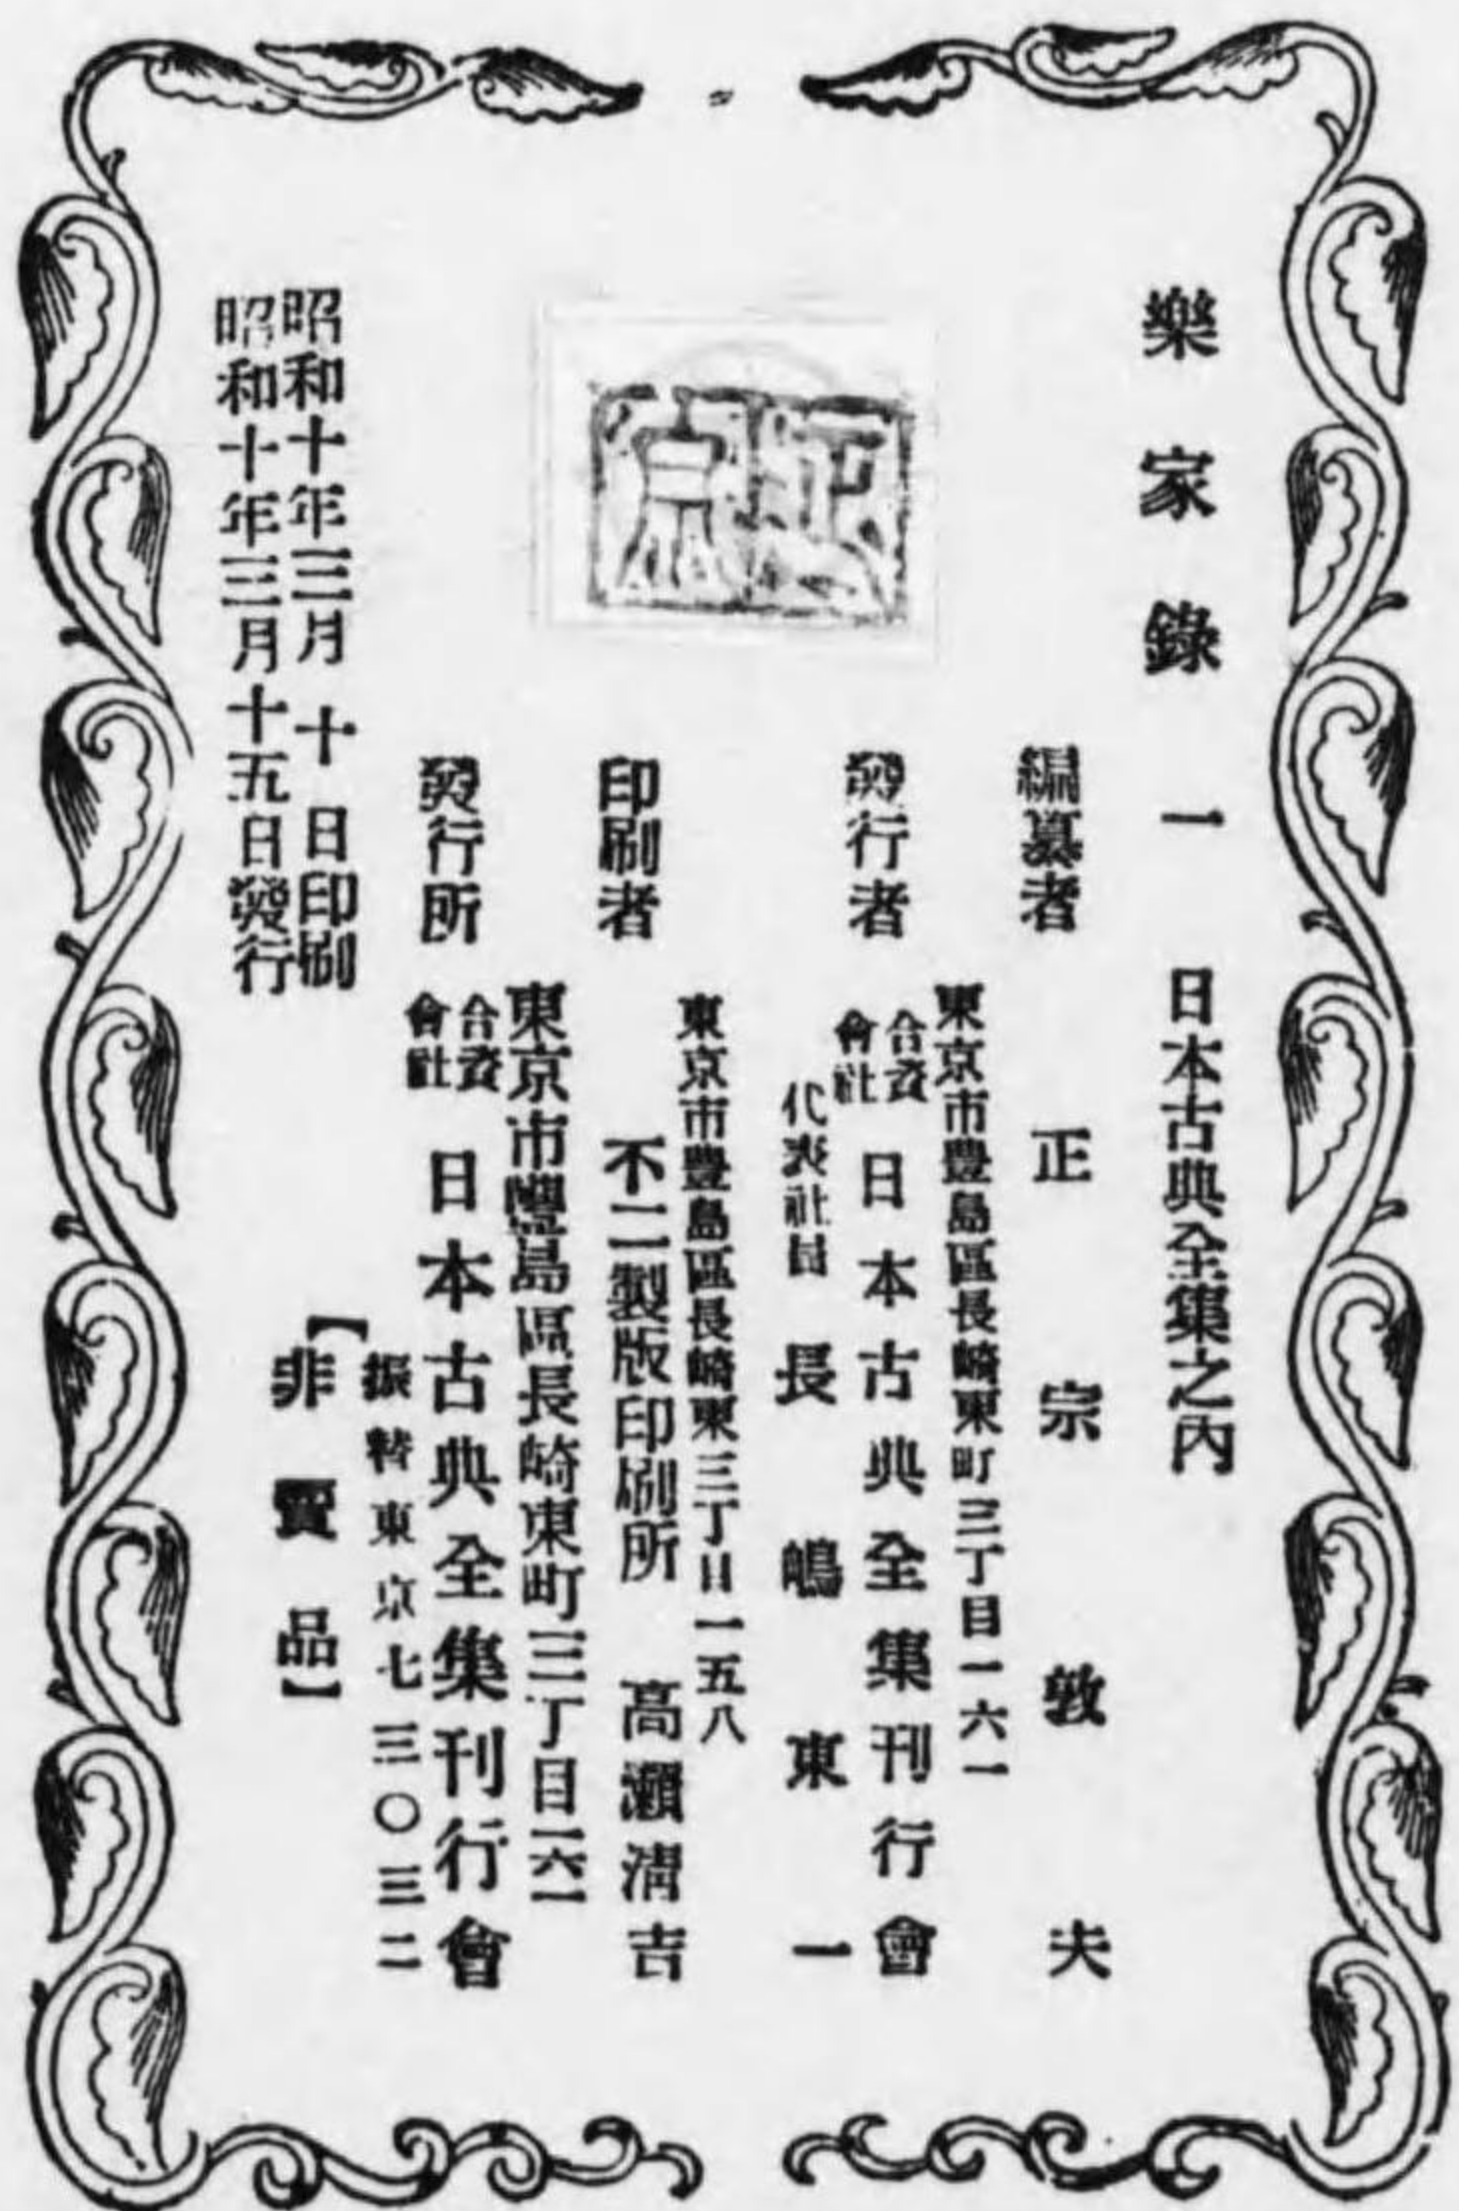 樂家錄 一 日本古典全集之內
編纂者 正宗敦夫
東京市豐島區長崎東町三丁目一六一
發行者 合資會社 日本古典全集刊行會
代表社員 長嶋東一
東京市豐島區長崎東三丁目一五八
印刷者 不二製版印刷所 高瀨淸吉
東京市豐島區長崎東町三丁目一六一
發行所 合資會社 日本古典全集刊行會
振替東京七三〇三二
【非賣品】
昭和十年三月 十 日印刷
昭和十年三月十五日發行
正宗